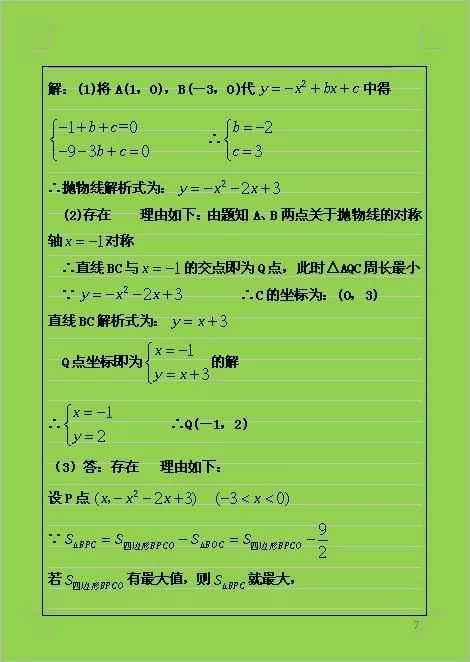 解：(1)将 A(1，0)，B(－3，0)代 y＝－x²＋bx＋c 中得
{－1＋b＋c=0 ∴ {b＝－2
{－9－3b＋c＝0 {c＝3
∴抛物线解析式为： y＝－x²－2x＋3
(2)存在 理由如下：由题知 A、B 两点关于抛物线的对称
轴 x＝－1 对称
∴直线 BC 与 x＝－1 的交点即为 Q 点，此时△AQC 周长最小
∵ y＝－x²－2x＋3 ∴C 的坐标为：(0，3)
直线 BC 解析式为： y＝x＋3
Q 点坐标即为 {x＝－1 的解
{y＝x＋3
∴ {x＝－1 ∴Q(－1，2)
{y＝2
（3）答：存在 理由如下：
设 P 点 (x,－x²－2x＋3) (－3＜x＜0)
∵ S△BPC＝S四边形BPCO－S△BOC＝S四边形BPCO－9/2
若 S四边形BPCO 有最大值，则 S△BPC 就最大，
7